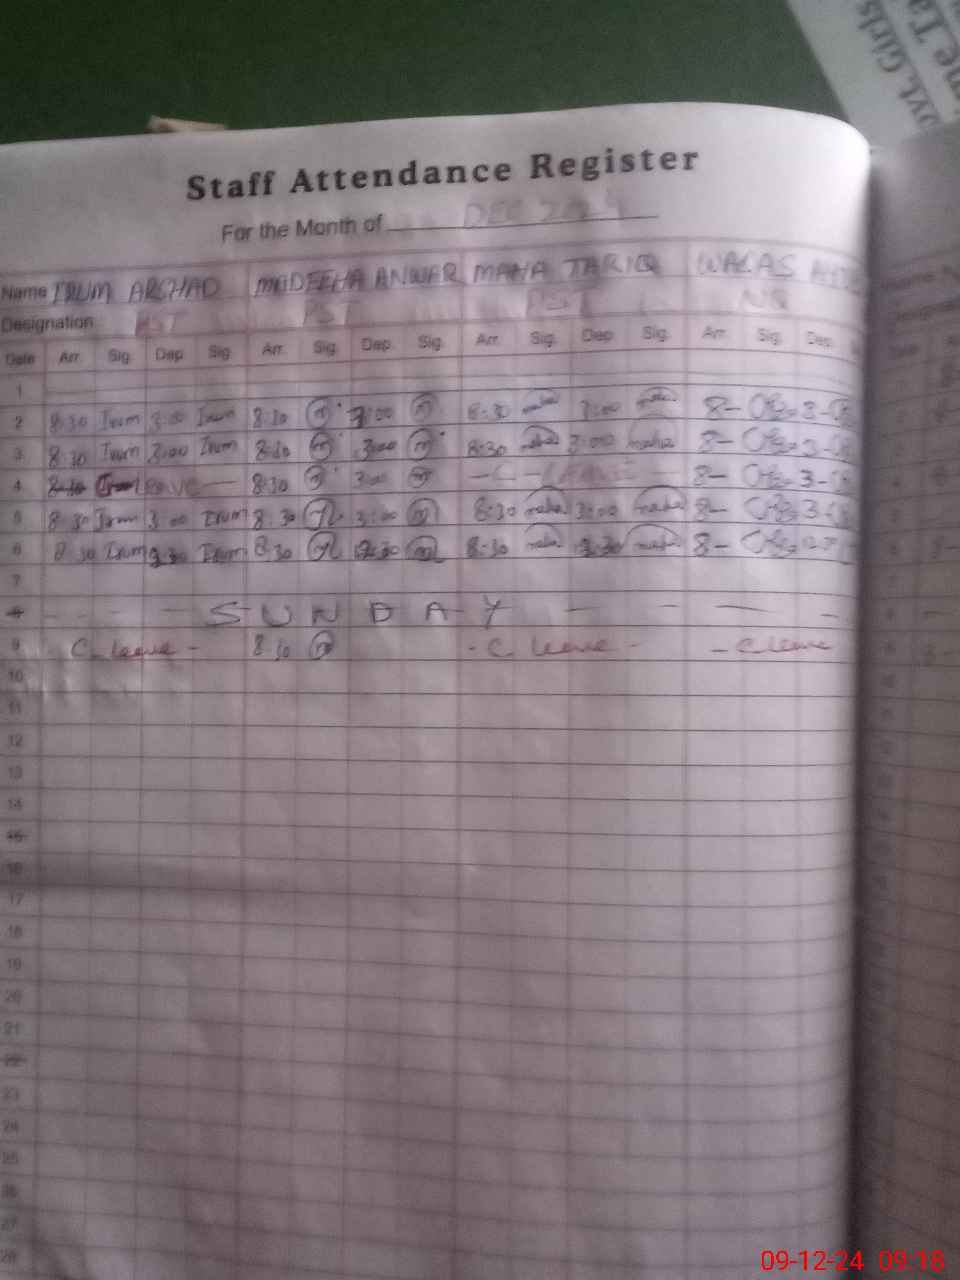 ovt. Girls
Staff Attendance Register
For the Month of DEC 2024
Name IRUM ARSHAD MADEEHA ANWAR MAHA TARIQ WAQAS
Designation PST PST NQ
Date Arr. Sig. Dep. Sig. Arr. Sig. Dep. Sig. Arr. Sig. Dep. Sig. Arr. Sig. Dep.
1
2 8:30 Irum 3:00 Irum 8:30 m 3:00 m 8:30 maha 3:00 maha 8- 3-
3 8:30 Irum 3:00 Irum 8:30 m 3:00 m 8:30 maha 3:00 maha 8- 3-
4 8:30 Leave 8:30 m 3:00 m - C - LEAVE - 8- 3-
5 8:30 Irum 3:00 Irum 8:30 m 3:00 m 8:30 maha 3:00 maha 8- 3-
6 8:30 Irum Irum 8:30 m m 8:30 maha maha 8-
7
8 SUNDAY
9 C leave - 8:30 m - C leave - - C leave
10
11
12
13
14
15
16
17
18
19
20
21
22
23
24
25
26
27
28
09-12-24 09:18